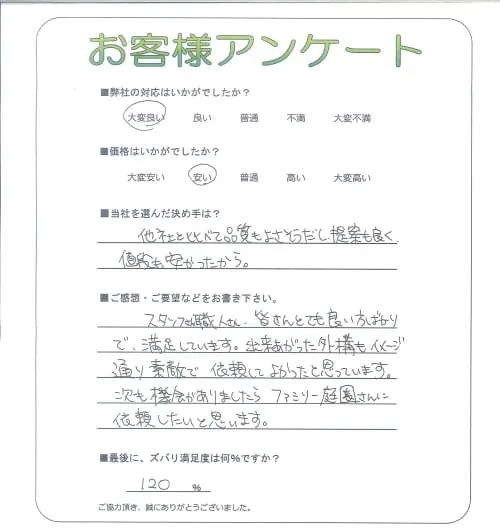 お客様アンケート
■弊社の対応はいかがでしたか？
大変良い 良い 普通 不満 大変不満
■価格はいかがでしたか？
大変安い 安い 普通 高い 大変高い
■当社を選んだ決め手は？
他社と比べて品質もよさそうだし提案も良く
値段も安かったから。
■ご感想・ご要望などをお書き下さい。
スタッフも職人さん、皆さんとても良い方ばかり
で、満足しています。出来あがった外構もイメージ
通り素敵で依頼してよかったと思っています。
次も機会がありましたらファミリー庭園さんに
依頼したいと思います。
■最後に、ズバリ満足度は何％ですか？
120 ％
ご協力頂き、誠にありがとうございました。